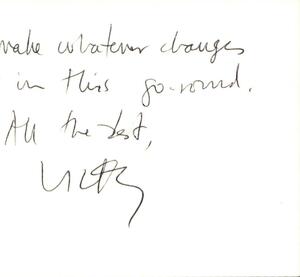 make whatever changes
in this go-round.
All the best,